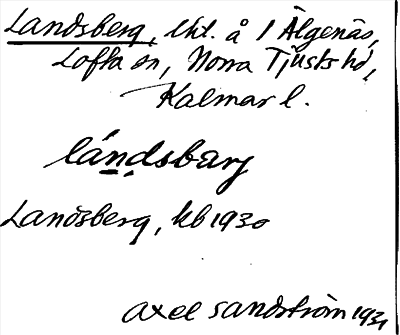 Landsberg, lht. å 1 Älgenäs,
Lofta sn, Norra Tjusts hd,
Kalmar l.
lándsbarj
Landsberg, kb 1930
Axel Sandström 1931